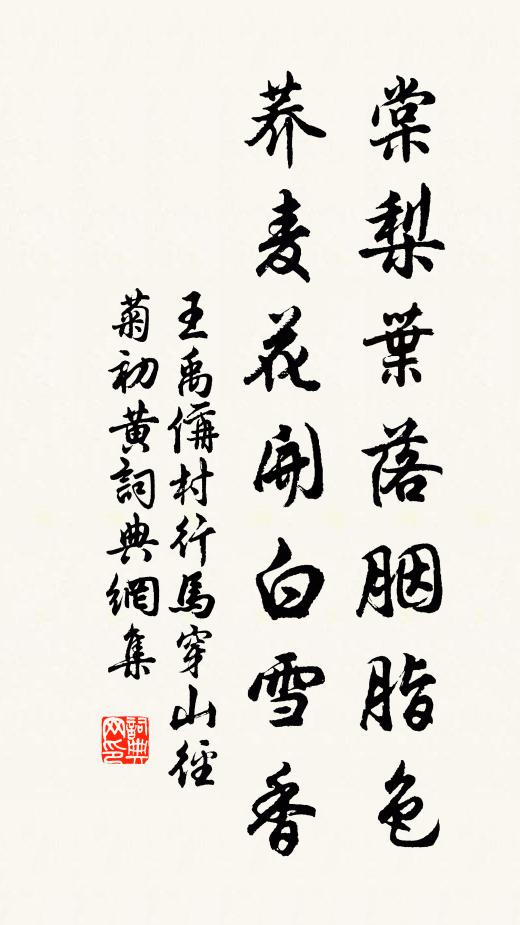 棠梨葉落胭脂色
荞麦花開白雪香
王禹偁村行馬穿山徑
菊初黄詞典網集
詞典网印